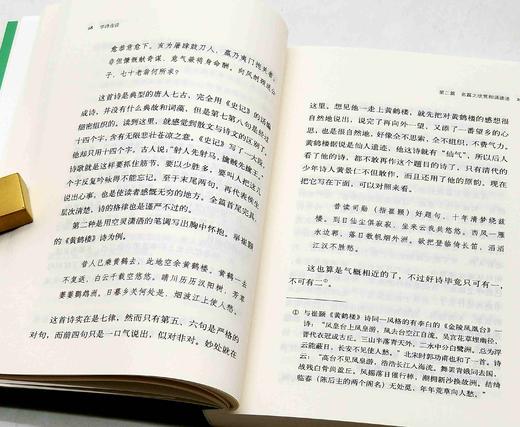 学诗浅说
愈恭意愈下。亥为屠肆鼓刀人，嬴乃夷门抱关者。
非但慷慨献奇谋，意气兼将身命酬。向风刎颈送公
子，七十老翁何所求？
这首诗是典型的唐人七古，完全用《史记》的话编
成诗，并没有什么典故和词藻，但是第七第八句是经过
细密组织的。读到这里，就感觉到散文与诗文的区别了。
十四个字，含有无限悲壮苍凉之意。《史记》
他却只用十四个字。古人说：“射人先射马，擒贼先擒王。”
诗歌就是这样要抓住筋节，要以少胜多，要叫人把这几
个字反复吟咏得不能忘记。至于末尾两句，再代表侯生
说出心事，也是使读者感慨无穷的地方。全篇首尾完具，
层次清楚，诗的格律也是谨严不过的。
第二种是用空灵潇洒的笔调写出胸中怀抱。举崔颢
的《黄鹤楼》诗为例。
昔人已乘黄鹤去，此地空余黄鹤楼。黄鹤一去
不复返，白云千载空悠悠。晴川历历汉阳树，芳草
萋萋鹦鹉洲。日暮乡关何处是，烟波江上使人愁。
这首诗实在是七律，然而只有第五、六句是严格的
对句，而前四句只是一口气说出，似对非对，妙处就在
第二篇 名篇之欣赏和诵读法
这里。想见他一走上黄鹤楼，就先把对黄鹤楼的感想很
自然地说出，说完了再向外一望，又添了一番望乡的心
思，也是很自然的，好像全不思索、全不组织，自成文章。
黄鹤楼据说是仙人遗迹，他这诗就有“仙气”，所以后人
看了他的诗，都不敢再作这个题目的诗了。只有清代的
少年诗人黄景仁不但敢作，而且还用了他的原韵，现在
把它写在下面，可以对照来看。
昔读司勋（指崔颢）好题句，十年清梦绕兹
楼。到日仙尘俱寂寂，坐来云我共悠悠。西风一雁
水边郭，落日数帆烟外舟。欲把登临倚长笛，滔滔
江汉不胜愁。
这也算是气概相近的了，不过好诗毕竟只可有一，
不可有二①。
① 与崔颢《黄鹤楼》诗同一风格的有李白的《金陵凤凰台》一
诗：“凤凰台上凤凰游，凤去台空江自流。吴宫花草埋幽径，
晋代衣冠成古丘。三山半落青天外，二水中分白鹭洲。总为浮
云能蔽日，长安不见使人愁。”北宋时郭功甫也和了一首。诗
云：“高台不见凤凰游，浩浩长江入海流。舞罢青蛾同去国，
战残白骨尚盈丘。风摇落日催行棹，潮拥新沙换故洲。结绮
临春（陈后主的两个阁名）无处觅，年年荒草向人愁。”